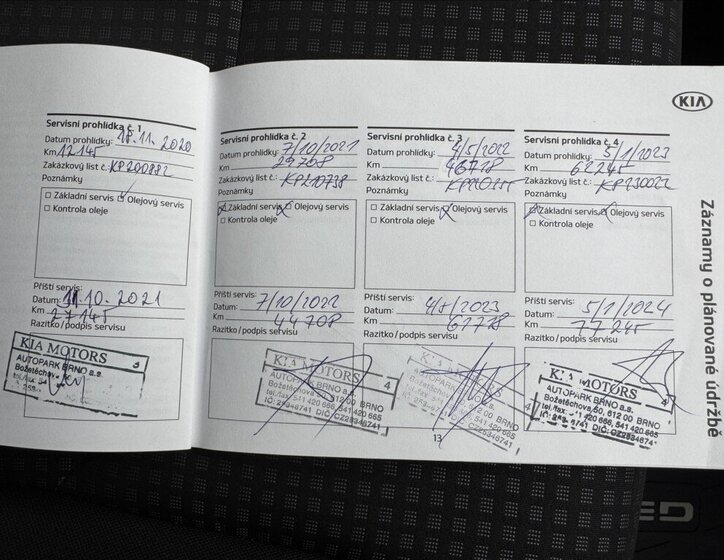 KIA
Záznamy o plánované údržbě
Servisní prohlídka č. 1
Datum prohlídky: 18.11.2020
Km 12145
Zakázkový list č.: KP200882
Poznámky
Základní servis Olejový servis
Kontrola oleje
Příští servis:
Datum: 11.10.2021
Km 27145
Razítko/podpis servisu
KIA MOTORS 3
AUTOPARK BRNO a.s.
Servisní prohlídka č. 2
Datum prohlídky: 7/10/2021
Km 29708
Zakázkový list č.: KP210738
Poznámky
Základní servis Olejový servis
Kontrola oleje
Příští servis:
Datum: 7/10/2022
Km 44708
Razítko/podpis servisu
KIA MOTORS
AUTOPARK BRNO a.s. 4
Božetěchova 50, 612 00 BRNO
tel./fax: 541 420 666, 541 420 665
IČ: 28346741 DIČ: CZ28346741
Servisní prohlídka č. 3
Datum prohlídky: 4/5/2022
Km 46778
Zakázkový list č.:
Poznámky
Základní servis Olejový servis
Kontrola oleje
Příští servis:
Datum: 4/5/2023
Km 61778
Razítko/podpis servisu
Servisní prohlídka č. 4
Datum prohlídky: 5/1/2023
Km 62245
Zakázkový list č.: KP230022
Poznámky
Základní servis Olejový servis
Kontrola oleje
Příští servis:
Datum: 5/1/2024
Km 77245
Razítko/podpis servisu
KIA MOTORS
AUTOPARK BRNO a.s. 4
Božetěchova 50, 612 00 BRNO
13